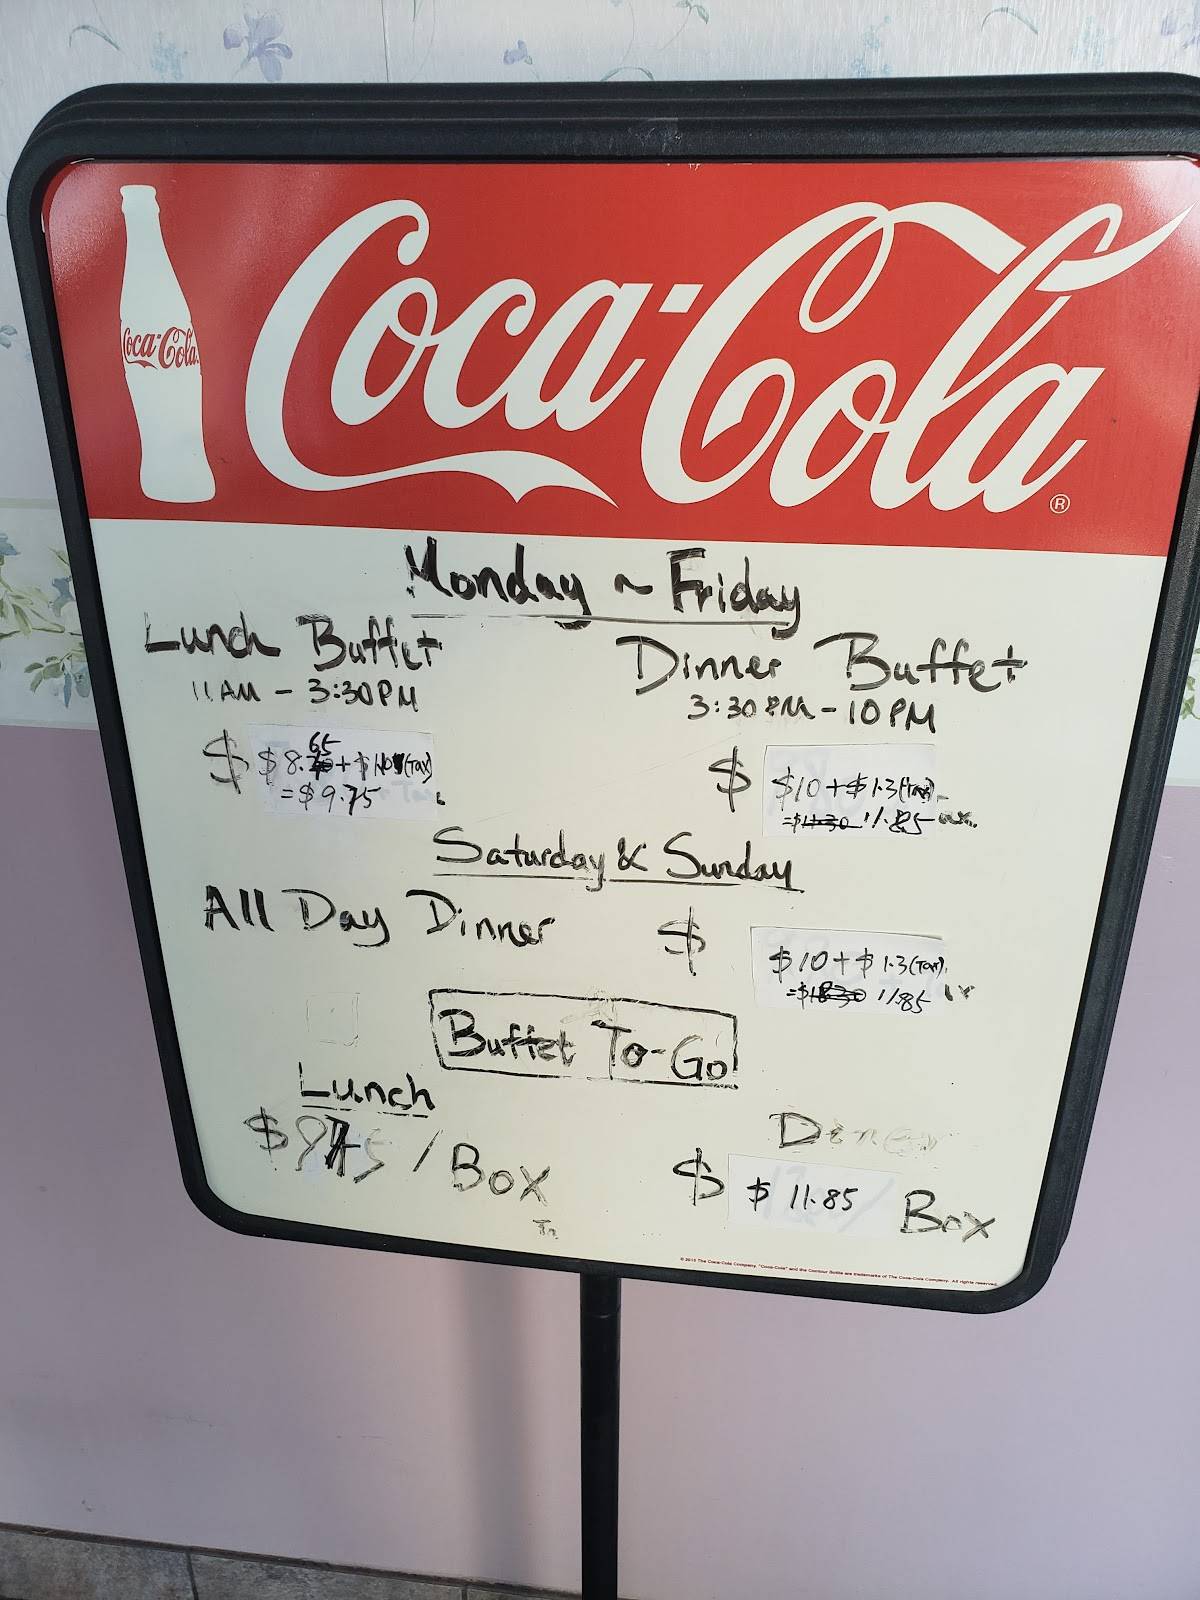 Coca-Cola
Coca-Cola ®
Monday ~ Friday
Lunch Buffet
11 AM - 3:30 PM
$ $8.65 + $ (Tax)
= $9.75
Dinner Buffet
3:30 PM - 10 PM
$ $10 + $1.3 (Tax)
= 11.85
Saturday & Sunday
All Day Dinner $ $10 + $1.3 (Tax)
= 11.85
Buffet To-Go
Lunch
$ / Box
Dinner
$ $ 11.85 Box
© 2015 The Coca-Cola Company. "Coca-Cola" and the Contour Bottle are trademarks of The Coca-Cola Company. All rights reserved.